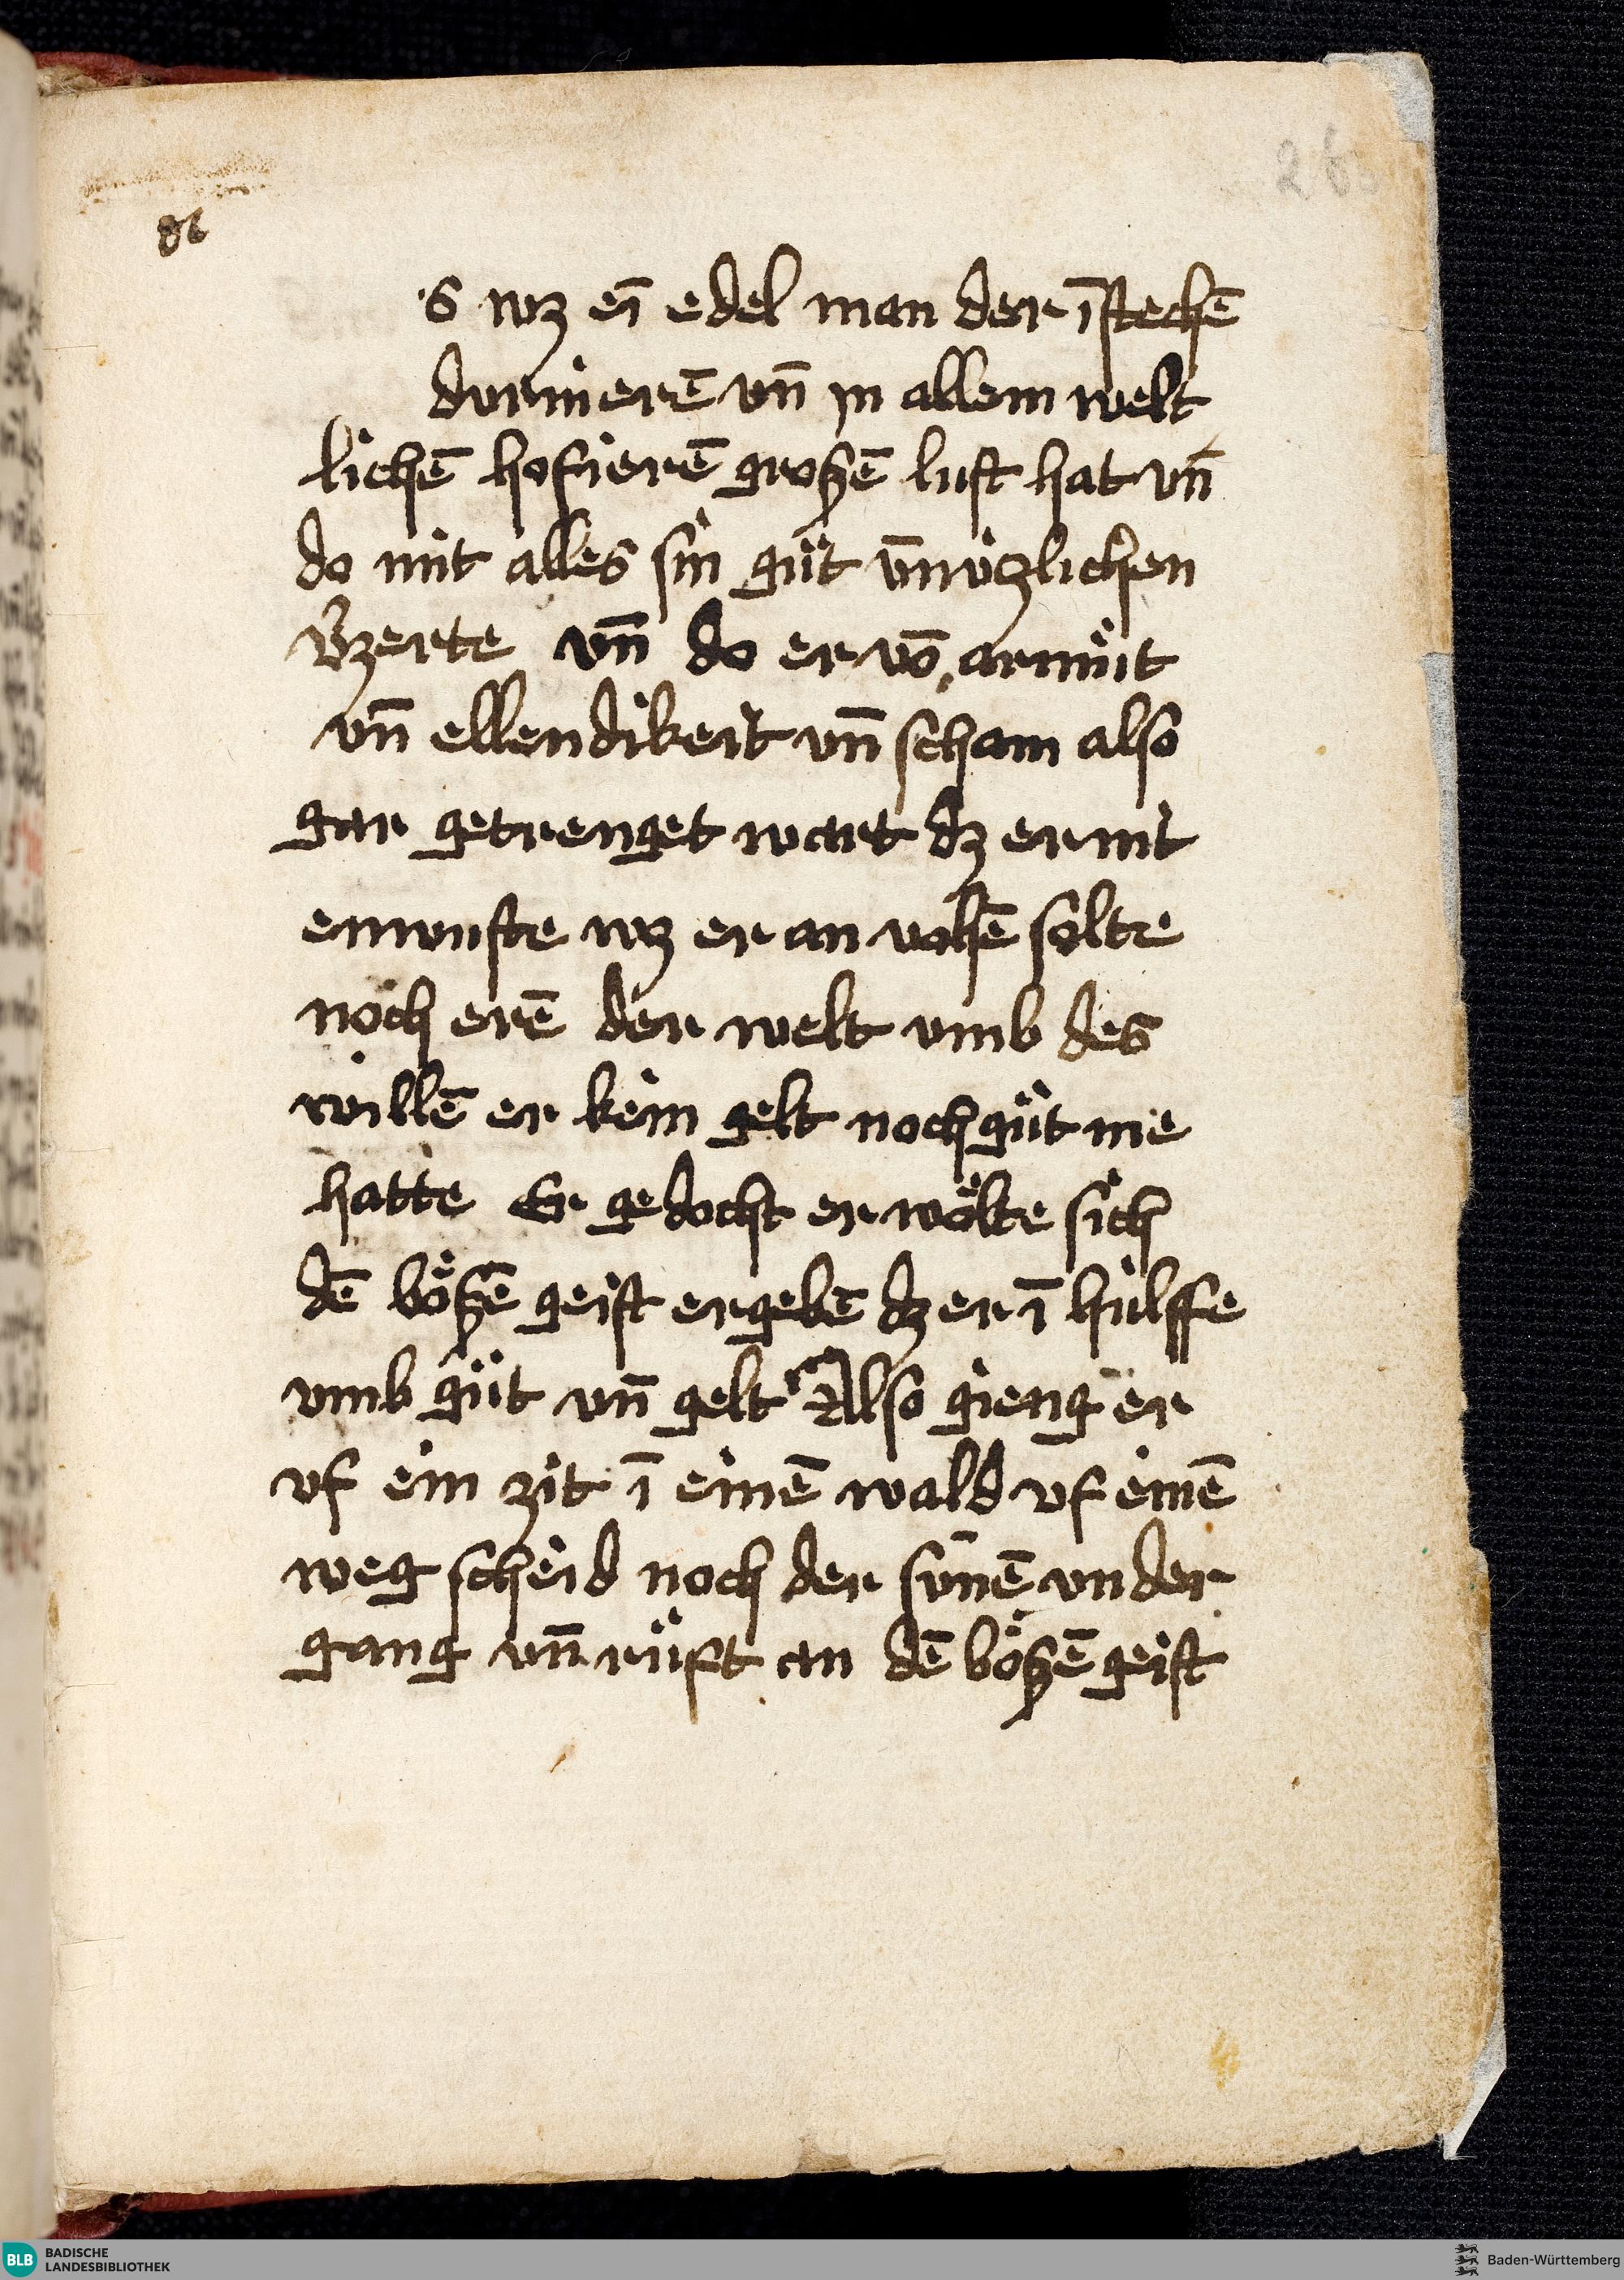 26
·s wz eī edel man der ī stechē
durnierē vn̄ in allem welt
lichē hofierē groszē lust hat vn̄
do mit alles sin gůt vn̄nüczlichen
v̄zerte vn̄ do er vō armůt
vn̄ ellendikeit vn̄ scham also
gar getrenget wart dz er nit
enwuste wz er an vohē solte
noch erē der welt vmb des
willē er kein gelt noch gůt me
hatte Er gedocht er wölte sich
dē bößē geist ergebē dz er ī hülffe
vmb gůt vn̄ gelt Also gieng er
vf ein zit ī einē wald vf einē
weg scheid noch der sūnē vnder
gang vn̄ růft an dē bößē geist
BLB BADISCHE
LANDESBIBLIOTHEK
Baden-Württemberg